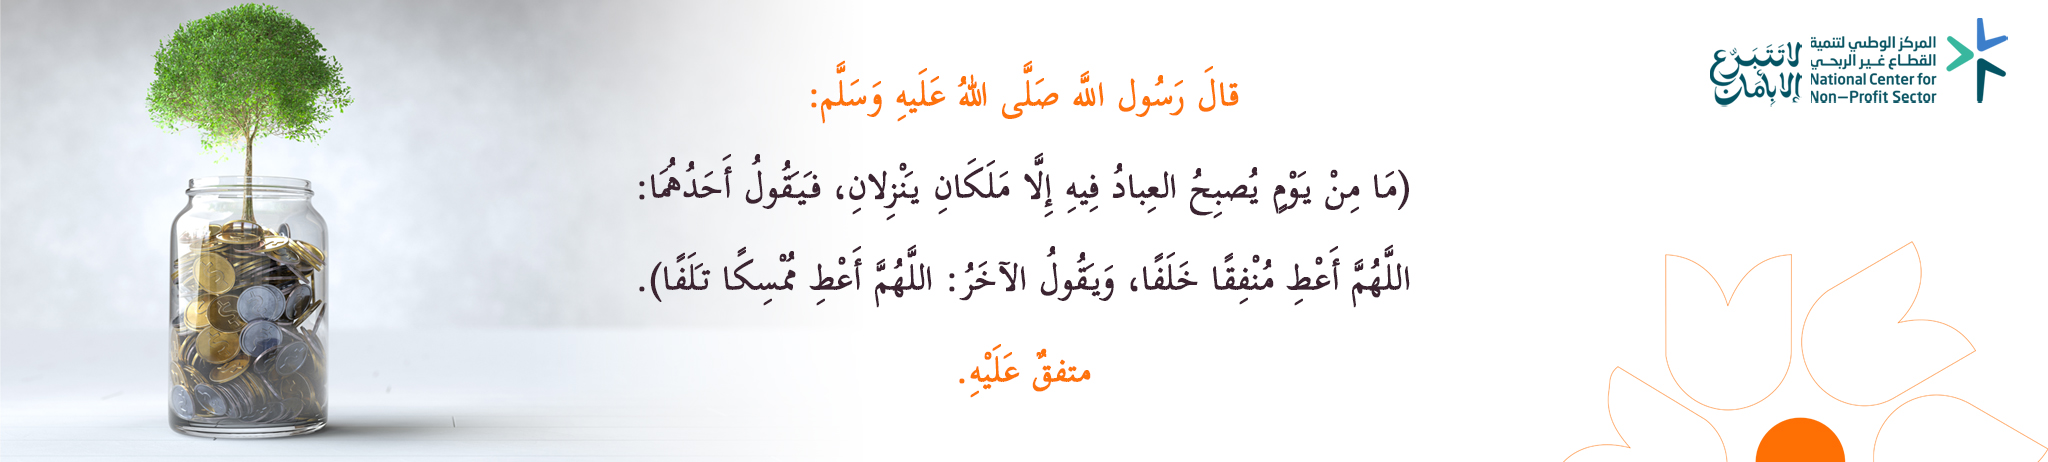 المركز الوطني لتنمية
القطاع غير الربحي
National Center for
Non–Profit Sector
لا تتبرع
إلا بأمان
قالَ رَسُول اللَّه صَلَّى اللهُ عَلَيهِ وَسَلَّم:
(مَا مِنْ يَوْمٍ يُصبِحُ العِبادُ فِيهِ إِلَّا مَلَكَانِ يَنْزِلانِ، فَيَقُولُ أَحَدُهُمَا:
اللَّهُمَّ أَعْطِ مُنْفِقًا خَلَفًا، وَيَقُولُ الآخَرُ: اللَّهُمَّ أَعْطِ مُمْسِكًا تَلَفًا).
متفقٌ عَلَيْهِ.